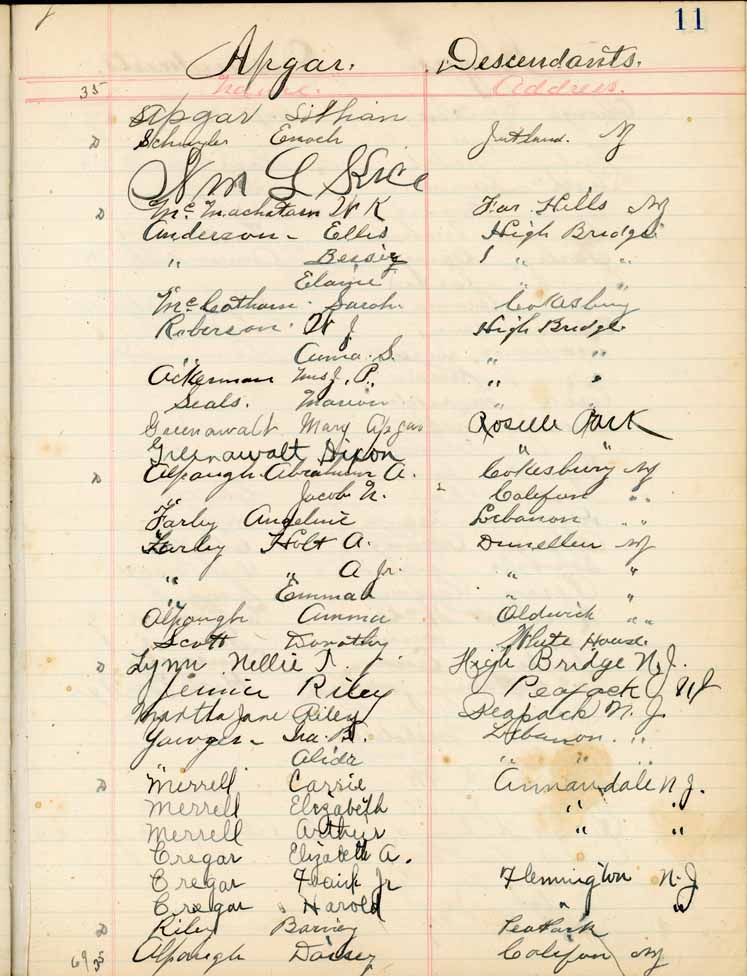 11
Apgar. Descendants.
35 Name. Address.
Apgar Lillian
D Schuyler Enoch Jutland. NJ
Wm L Rice
D Mc Machatam W K Far Hills NJ
Anderson - Ellis High Bridge
" Bessie " "
Elaine " "
Mc Cathern Sarah Cokesbury
Roberson W J High Bridge
Anna S. " "
Ackerman Mrs J. P. " "
Seals. Marion " "
Greenawalt Mary Apgar Roselle Park
Greenawalt Dixon " "
D Alpaugh Abraham A. Cokesbury NJ
" Jacob N. Califon "
Farley Angeline Lebanon "
Farley Holt A. Dunellen NJ
" " A Jr. " "
" Emma " "
Alpaugh Anna Oldwick "
Scott Dorothy White House
D Lynn Nellie T. High Bridge N.J.
Jennie Riley Peapack NJ
Martha Jane Riley Peapack N. J.
Yawger - Ira B. Lebanon "
Alida " "
D Merrell Carrie Annandale N.J.
Merrell Elizabeth " "
Merrell Arthur " "
Cregar Elizabeth A.
Cregar Frank Jr Flemington N.J
Cregar Harold " "
D Riley Barney Peapack
69 35 Alpaugh Daisey Califon NJ